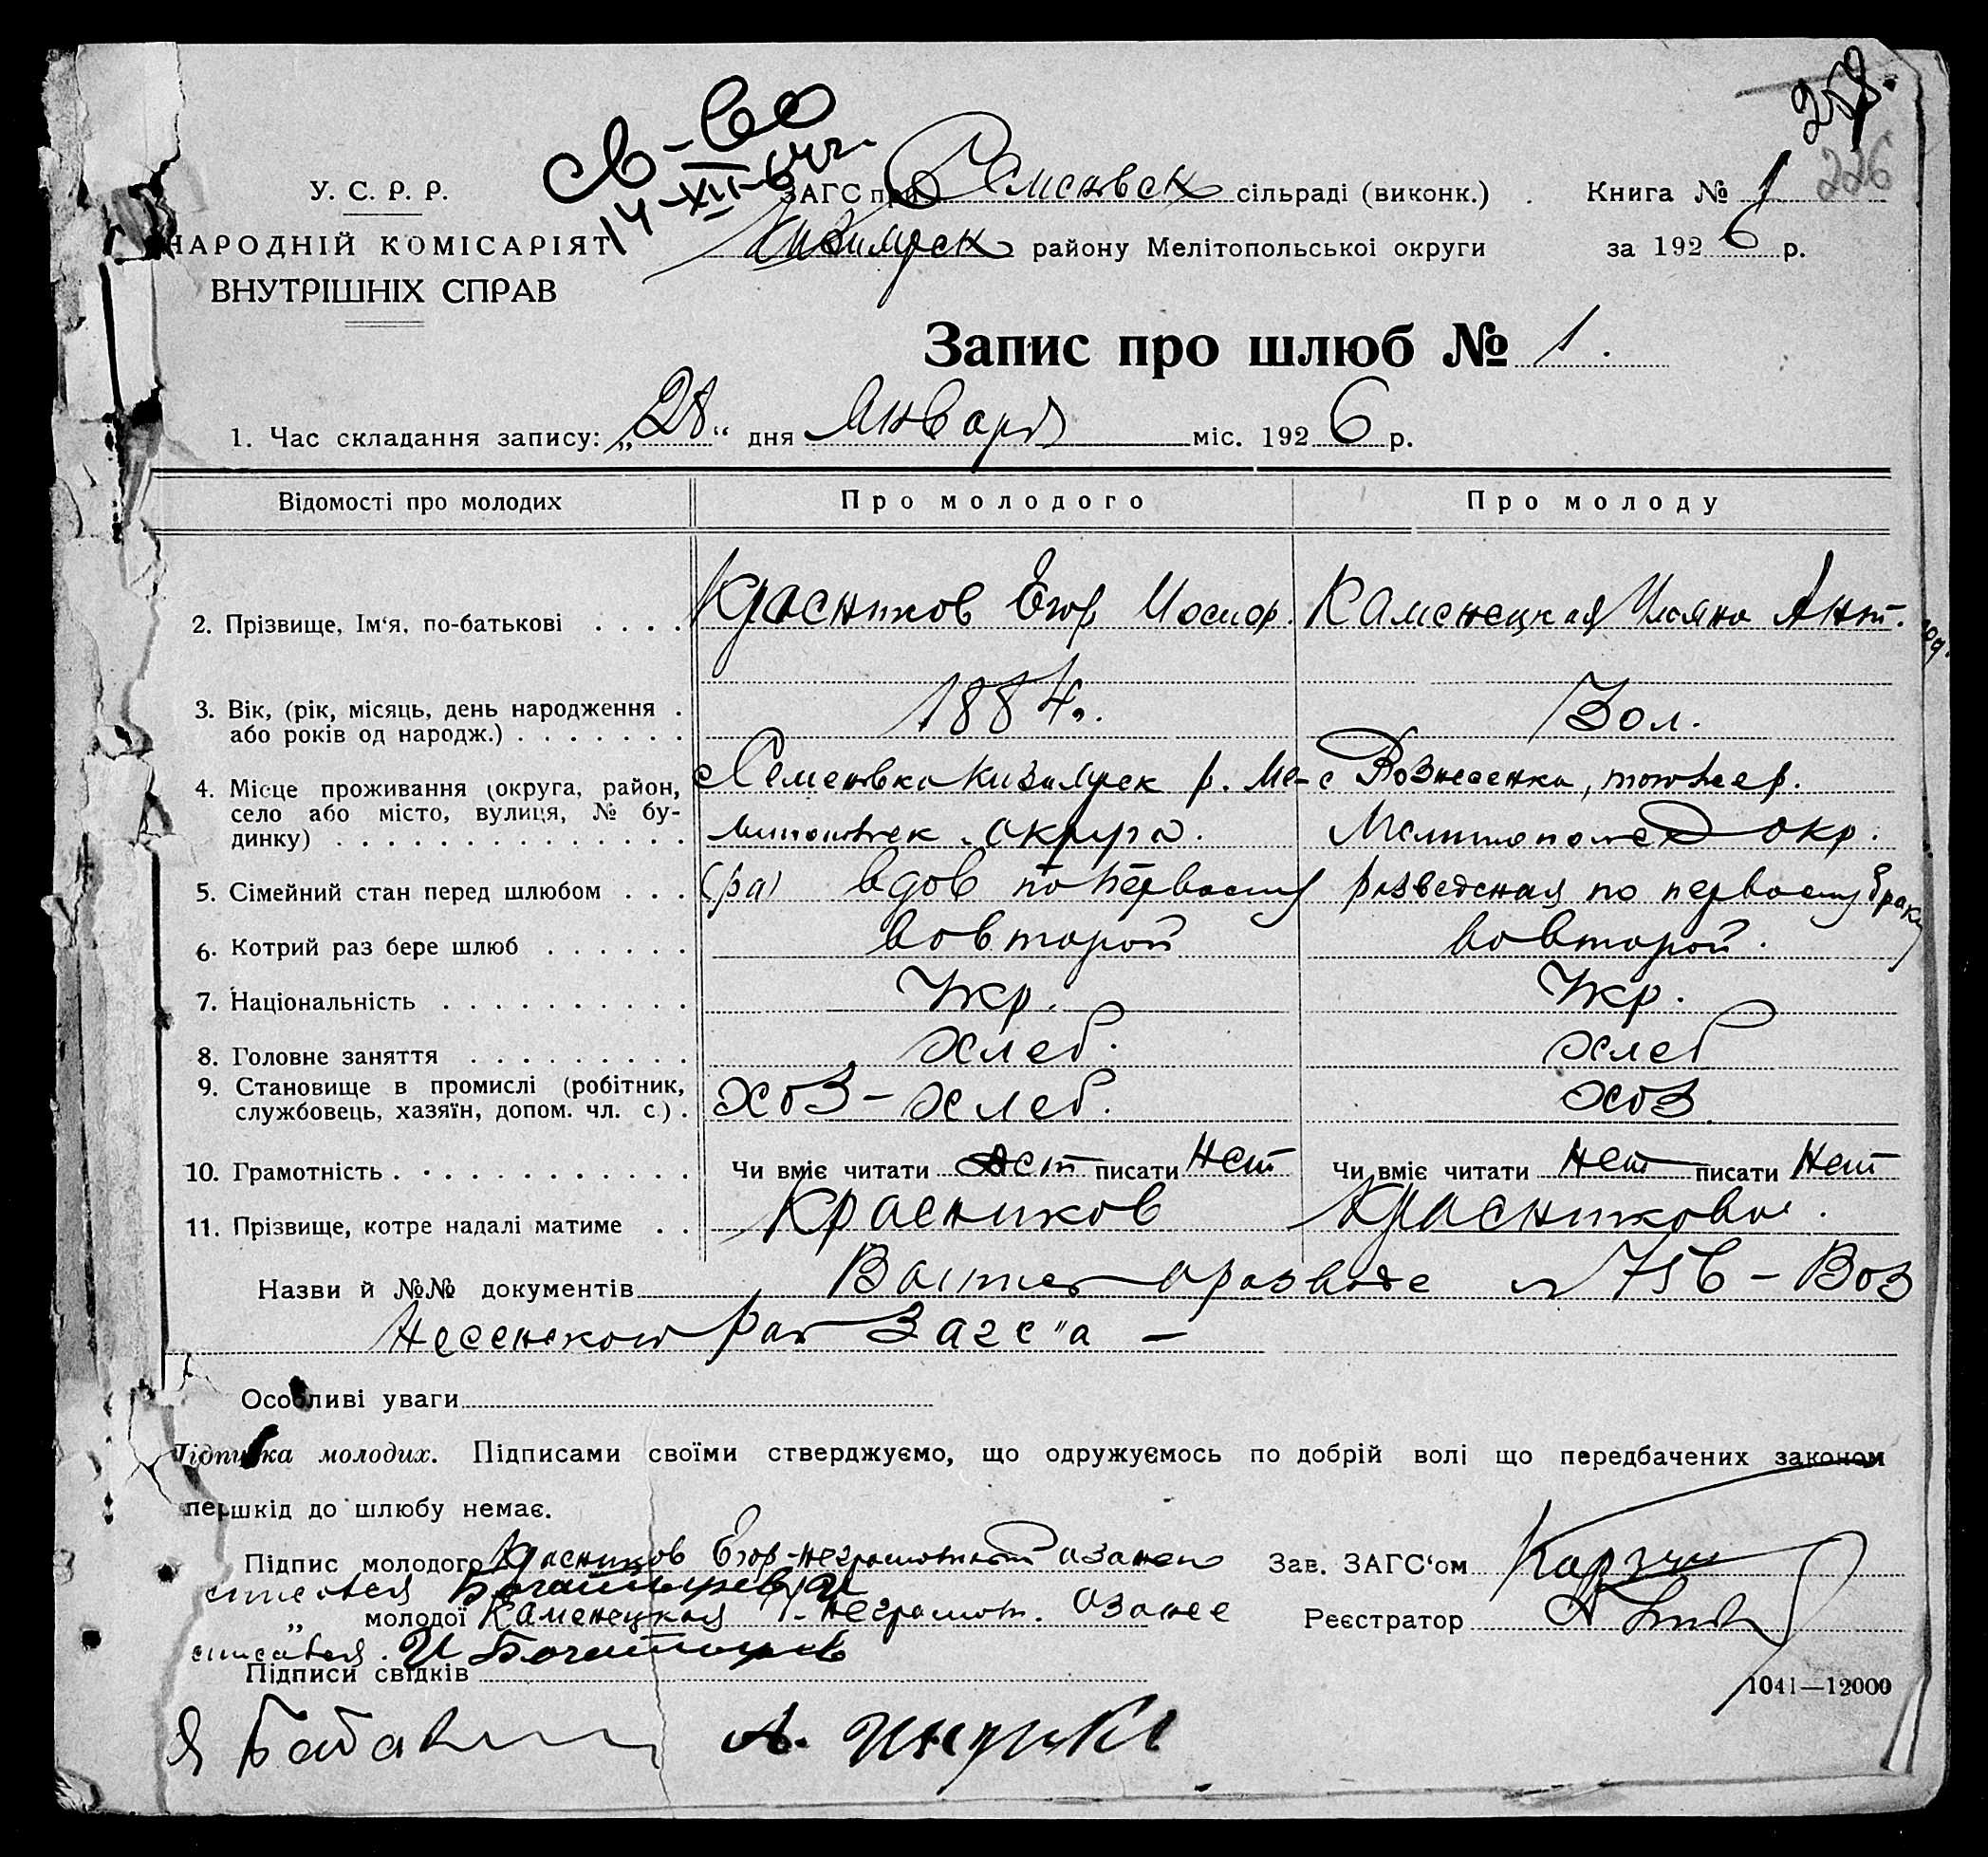 258.
226
св-во
14-XII-64г.
У. С. Р. Р.
НАРОДНІЙ КОМІСАРІЯТ
ВНУТРІШНІХ СПРАВ
ЗАГС при Семеновск сільраді (виконк.) Книга № 1
Кизилярск району Мелітопольської округи за 1926 р.
Запис про шлюб № 1.
1. Час складання запису: „28“ дня Января міс. 1926 р.
Відомості про молодих Про молодого Про молоду
2. Прізвище, Ім‘я, по-батькові . . . . Красников Егор Иосиф. Каменецкая Ульяна Ант.
3. Вік, (рік, місяць, день народження . або років од народж.) . . . . . . . 1884. 30л.
4. Місце проживання (округа, район, село або місто, вулиця, № будинку) . . . . . . . . . . . . . . .
с Семеновка Кизилярск р. Ме- с Вознесенка, тот же р.
литопольск. округа. Мелитопольск окр.
5. Сімейний стан перед шлюбом . . . вдов по первому разведеная по первому браку
6. Котрий раз бере шлюб . . . . . . во второй во второй.
7. Національність . . . . . . . . . . Укр. Укр.
8. Головне заняття . . . . . . . . . хлеб. хлеб
9. Становище в промислі (робітник, службовець, хазяїн, допом. чл. с.) . хоз - хлеб. хоз
10. Грамотність . . . . . . . . . . . . Чи вміє читати нет писати нет Чи вміє читати нет писати нет
11. Прізвище, котре надалі матиме . . Красников Красникова.
Назви й №№ документів о разводе № 756 - Воз
несенского Рай Загс"а -
Особливі уваги
Підписка молодих. Підписами своїми стверджуємо, що одружуємось по добрій волі що передбачених законом
першкід до шлюбу немає.
Підпис молодого Красников Егор - неграмотный а за него
Зав. ЗАГС‘ом
„ молодої Каменецкая У. неграмот. а за нее
Реєстратор
Підписи свідків
1041—12000